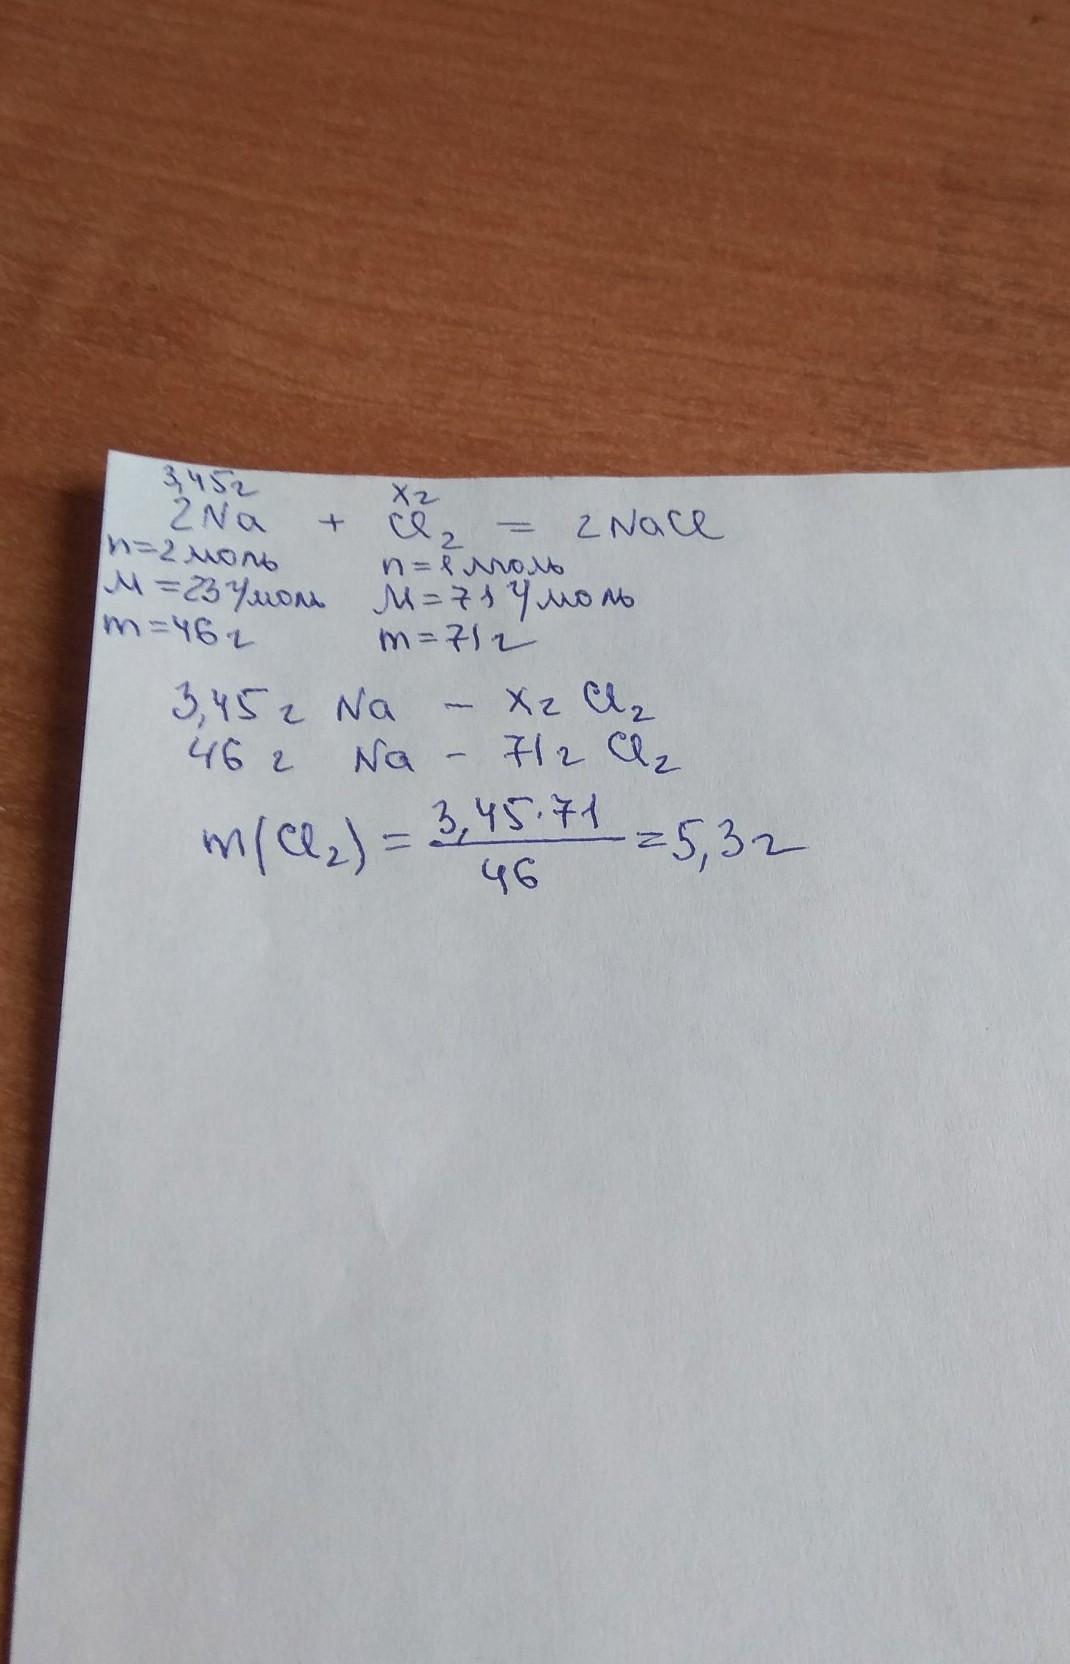 3,45г хг
2Na + Cl₂ = 2NaCl
n=2моль n=1моль
M=23г/моль M=71г/моль
m=46г m=71г
3,45г Na - хг Cl₂
46г Na - 71г Cl₂
m(Cl₂) = 3,45·71 / 46 = 5,3г